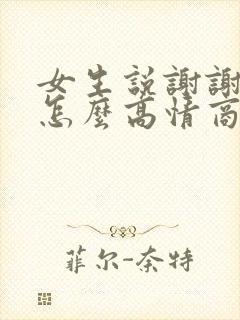 女生説謝謝
怎麼高情商
菲尔-奈特